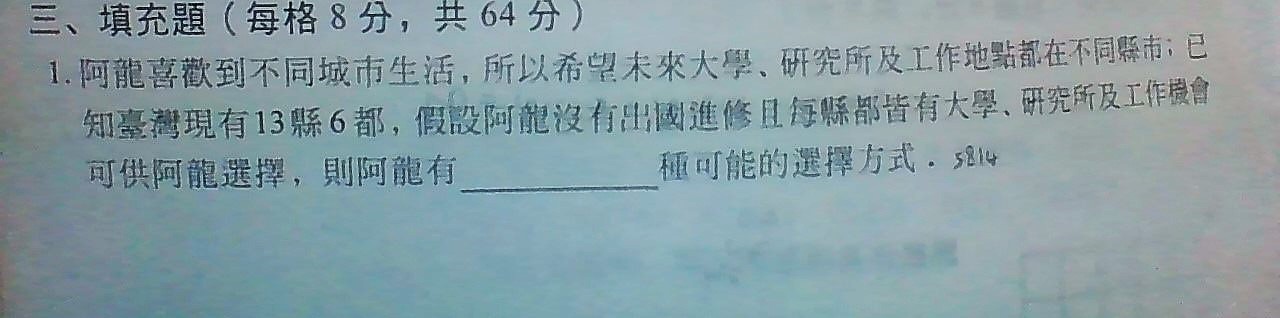 三、填充題（每格 8 分，共 64 分）
1. 阿龍喜歡到不同城市生活，所以希望未來大學、研究所及工作地點都在不同縣市；已
知臺灣現有13縣6都，假設阿龍沒有出國進修且每縣都皆有大學、研究所及工作機會
可供阿龍選擇，則阿龍有__________種可能的選擇方式．5814